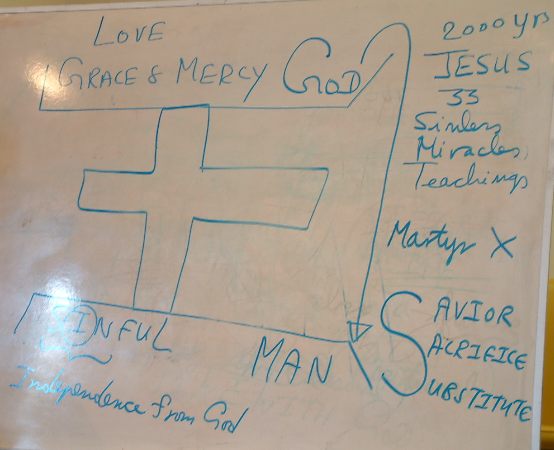 LOVE
GRACE & MERCY GOD
SINFUL
MAN
Independence from God
2000 yrs
JESUS
33
Sinless
Miracles
Teachings
Martyr X
SAVIOR
SACRIFICE
SUBSTITUTE